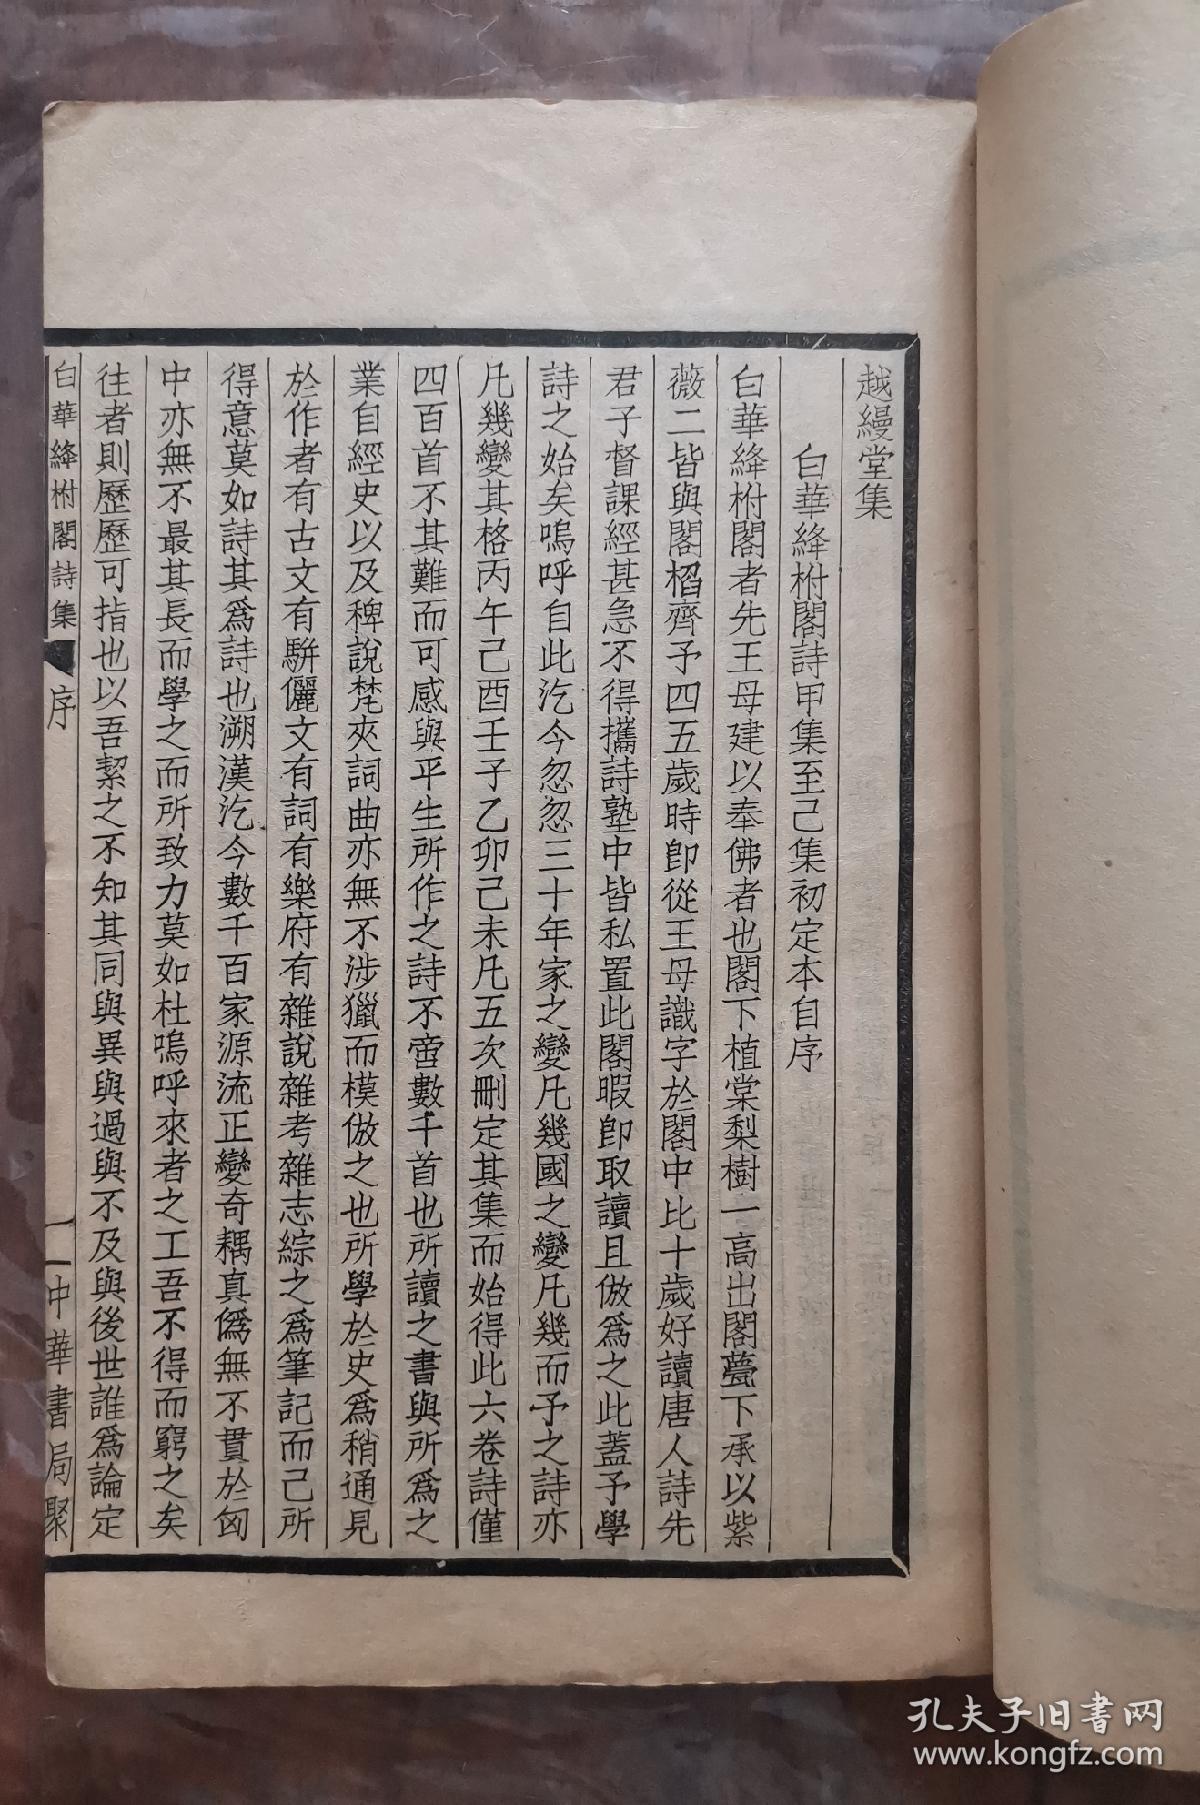 越縵堂集
白華絳柎閣詩甲集至己集初定本自序
白華絳柎閣者先王母建以奉佛者也閣下植棠梨樹一高出閣甍下承以紫
薇二皆與閣榴齊予四五歲時即從王母識字於閣中比十歲好讀唐人詩先
君子督課經甚急不得攜詩塾中皆私置此閣暇即取讀且倣爲之此蓋予學
詩之始矣嗚呼自此汔今忽忽三十年家之變凡幾國之變凡幾而予之詩亦
凡幾變其格丙午己酉壬子乙卯己未凡五次刪定其集而始得此六卷詩僅
四百首不其難而可感與平生所作之詩不啻數千首也所讀之書與所爲之
業自經史以及稗說梵夾詞曲亦無不涉獵而模倣之也所學於史爲稍通見
於作者有古文有駢儷文有詞有樂府有雜說雜考雜志綜之爲筆記而己所
得意莫如詩其爲詩也溯漢汔今數千百家源流正變奇耦真僞無不貫於匈
中亦無不最其長而學之而所致力莫如杜嗚呼來者之工吾不得而窮之矣
往者則歷歷可指也以吾絜之不知其同與異與過與不及與後世誰爲論定
白華絳柎閣詩集 序 一 中華書局聚
孔夫子旧书网
www.kongfz.com